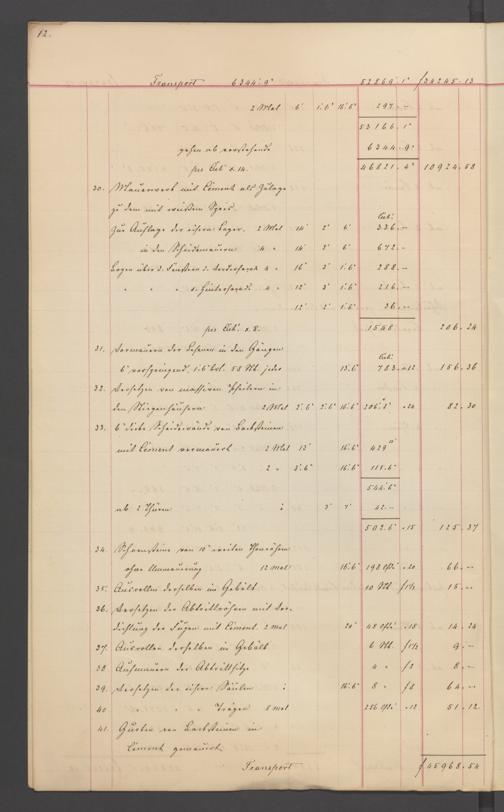 12.
Transport 6344.9" 52869.1" f 34245.13
2 Mal 6' 1'.6" 16'.6" 297.–
53166.1"
gehen ab verstehende 6344.9"
per Cub. f.14. 46821.4" 10924.58
30. Mauerwerk mit Cement als Zulage
zu dem mit weißem Speis.
Zur Auflage der eisern Lager. 2 Mal 14' 2' 6' Cub.' 336.–
in den Scheidemauern 4 " 14' 2' 6' 672.–
Bogen über d. Fenstern d. Vorderfacade 4 " 16' 3' 1'.6" 288.–
" " " d. Hinterfacade 4 " 12' 3' 1'.6" 216.–
12' 2' 1'.6" 36.–
per Cub.' x.8. 1548 206.24
31. Vermauern der Lisenen in den Gängen
6" vorspringend, 1'.6" brt. 58 Stk. jeder 13'.6" Cub.' 783. x12 156.36
32. Versetzen von massiven Pfeilern in
den Stiegenhäusern 2 Mal 2'.6" 2'.6" 16'.6" x24 82.30
33. 6" dicke Scheidewände von Backsteinen
mit Cement vermauert 2 Mal 13' 16'.6" 429
2 " 3'.6" 16'.6" 115.6"
544.6"
ab 2 Thüren : 3' 7' 42.–
502.6" x15 125.37
34. Schornsteine von 10" weiten Thonröhren
ohne Ummauerung 12 Mal 16'.6" 198 x20 66.–
35. Ausrollen derselben im Gebälk 10 Stk f 1½ 15.–
36. Versetzen der Abtrittröhren mit Ver-
dichtung der Fugen mit Cement. 2 Mal 24' 48 x18 14.24
37. Ausrollen derselben im Gebälk 6 Stk. f 1½ 9.–
38. Aufmauern der Abtrittsitze 4 " f 2 8.–
39. Versetzen der eisern Säulen : 16'.6" 8 " f 8 64.–
40. " " " Träger 8 Mal 256 x12 51.12
41. Gurten von Backsteinen in
Cement gemauert
Transport f 45968.54